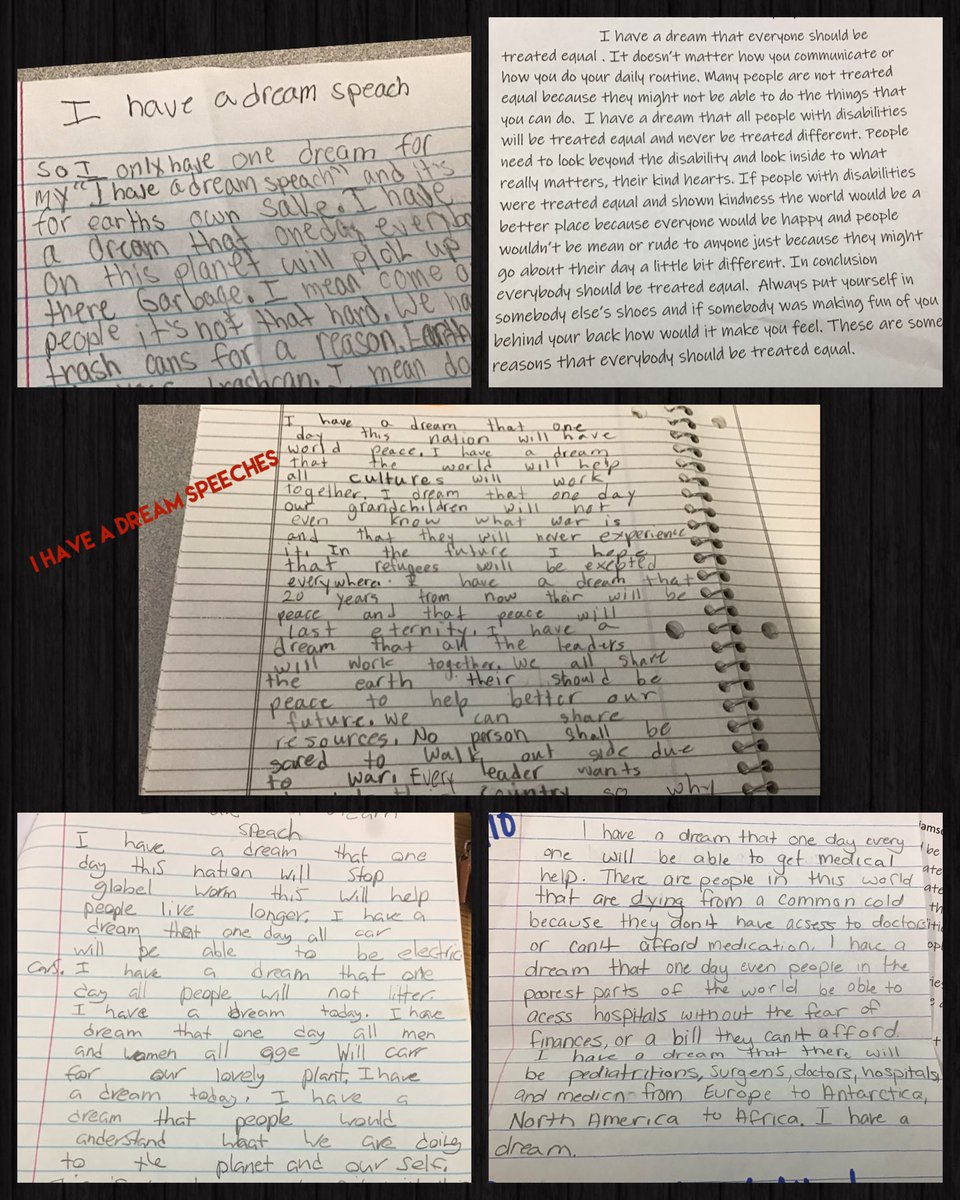 I have a dream speach
So I only have one dream for
my "I have a dream speach" and it's
for earths own sake. I have
a dream that oneday
on this planet will pick up
there Garbage. I mean come
people it's not that hard. We
trash cans for a reason. Earth
trashcan. I mean
I have a dream that everyone should be
treated equal . It doesn't matter how you communicate or
how you do your daily routine. Many people are not treated
equal because they might not be able to do the things that
you can do. I have a dream that all people with disabilities
will be treated equal and never be treated different. People
need to look beyond the disability and look inside to what
really matters, their kind hearts. If people with disabilities
were treated equal and shown kindness the world would be a
better place because everyone would be happy and people
wouldn't be mean or rude to anyone just because they might
go about their day a little bit different. In conclusion
everybody should be treated equal. Always put yourself in
somebody else's shoes and if somebody was making fun of you
behind your back how would it make you feel. These are some
reasons that everybody should be treated equal.
I HAVE A DREAM SPEECHES
I have a dream that one
day this nation will have
world peace. I have a dream
that the world will help
all cultures will work
together. I dream that one day
our grandchildren will not
even know what war is
and that they will never experience
it. In the future I hope
that refugees will be exepted
everywhere. I have a dream that
20 years from now their will be
peace and that peace will
last eternity. I have a
dream that all the leaders
will work together. We all share
the earth their should be
peace to help better our
future. We can share
resources. No person shall be
scared to walk out side due
to war. Every leader wants
country so why
speach
I have a dream that one
day this nation will stop
global worm this will help
people live longer. I have a
dream that one day all car
will be able to be electric
cars. I have a dream that one
day all people will not litter.
I have a dream today. I have
dream that one day all men
and women all age will carr
for our lovely plant. I have
a dream today. I have a
dream that people would
understand what we are doing
to the planet and our self.
10
I have a dream that one day every
one will be able to get medical
help. There are people in this world
that are dying from a common cold
because they don't have acsess to doctors
or can't afford medication. I have a
dream that one day even people in the
poorest parts of the world be able to
acess hospitals without the fear of
finances, or a bill they can't afford.
I have a dream that there will
be pediatritions, surgens, doctors, hospitals,
and medicn from Europe to Antarctica,
North America to Africa. I have a
dream.